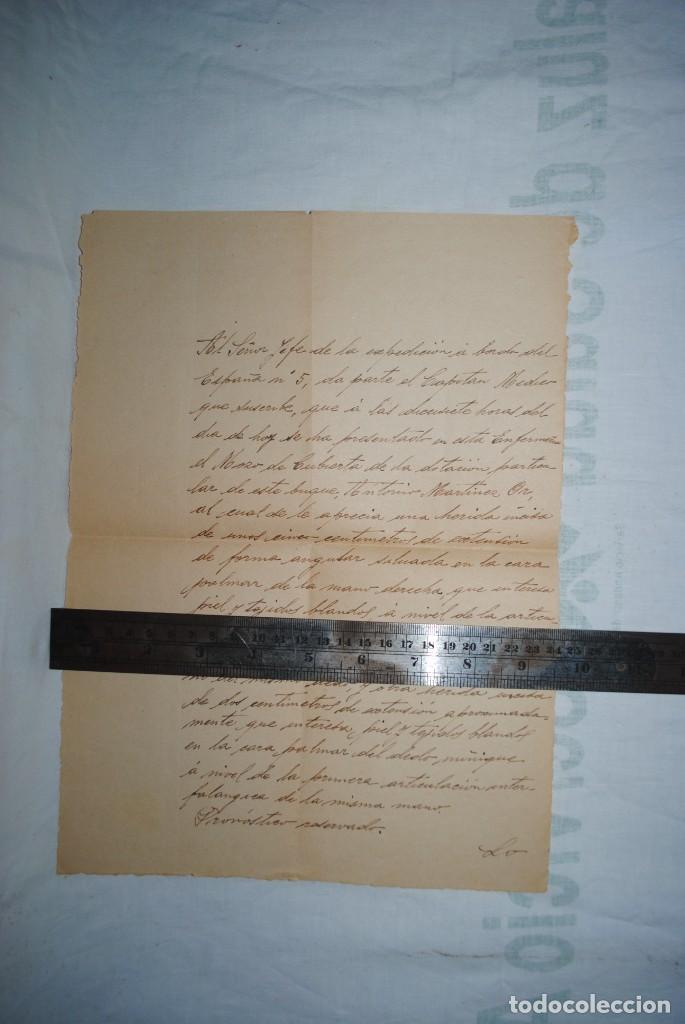 Al Señor Jefe de la expedición a bordo del
España nº 5, da parte el Capitan Medico
que suscribe, que á las diecisiete horas del
dia de hoy se ha presentado en esta Enfermeria
el Mozo de Cubierta de la dotación particu
lar de este buque, Antonio Martinez
al cual se le aprecia una herida incisa
de unos cinco centimetros de extensión
de forma angular situada en la cara
palmar de la mano derecha, que interesa
piel y tejidos blandos á nivel de la articu
y otra herida incisa
de dos centimetros de extensión aproximada-
mente que interesa piel y tejidos blandos
en la cara palmar del dedo meñique
á nivel de la primera articulación inter-
falangica de la misma mano.
Pronóstico reservado.
Lo
todocoleccion